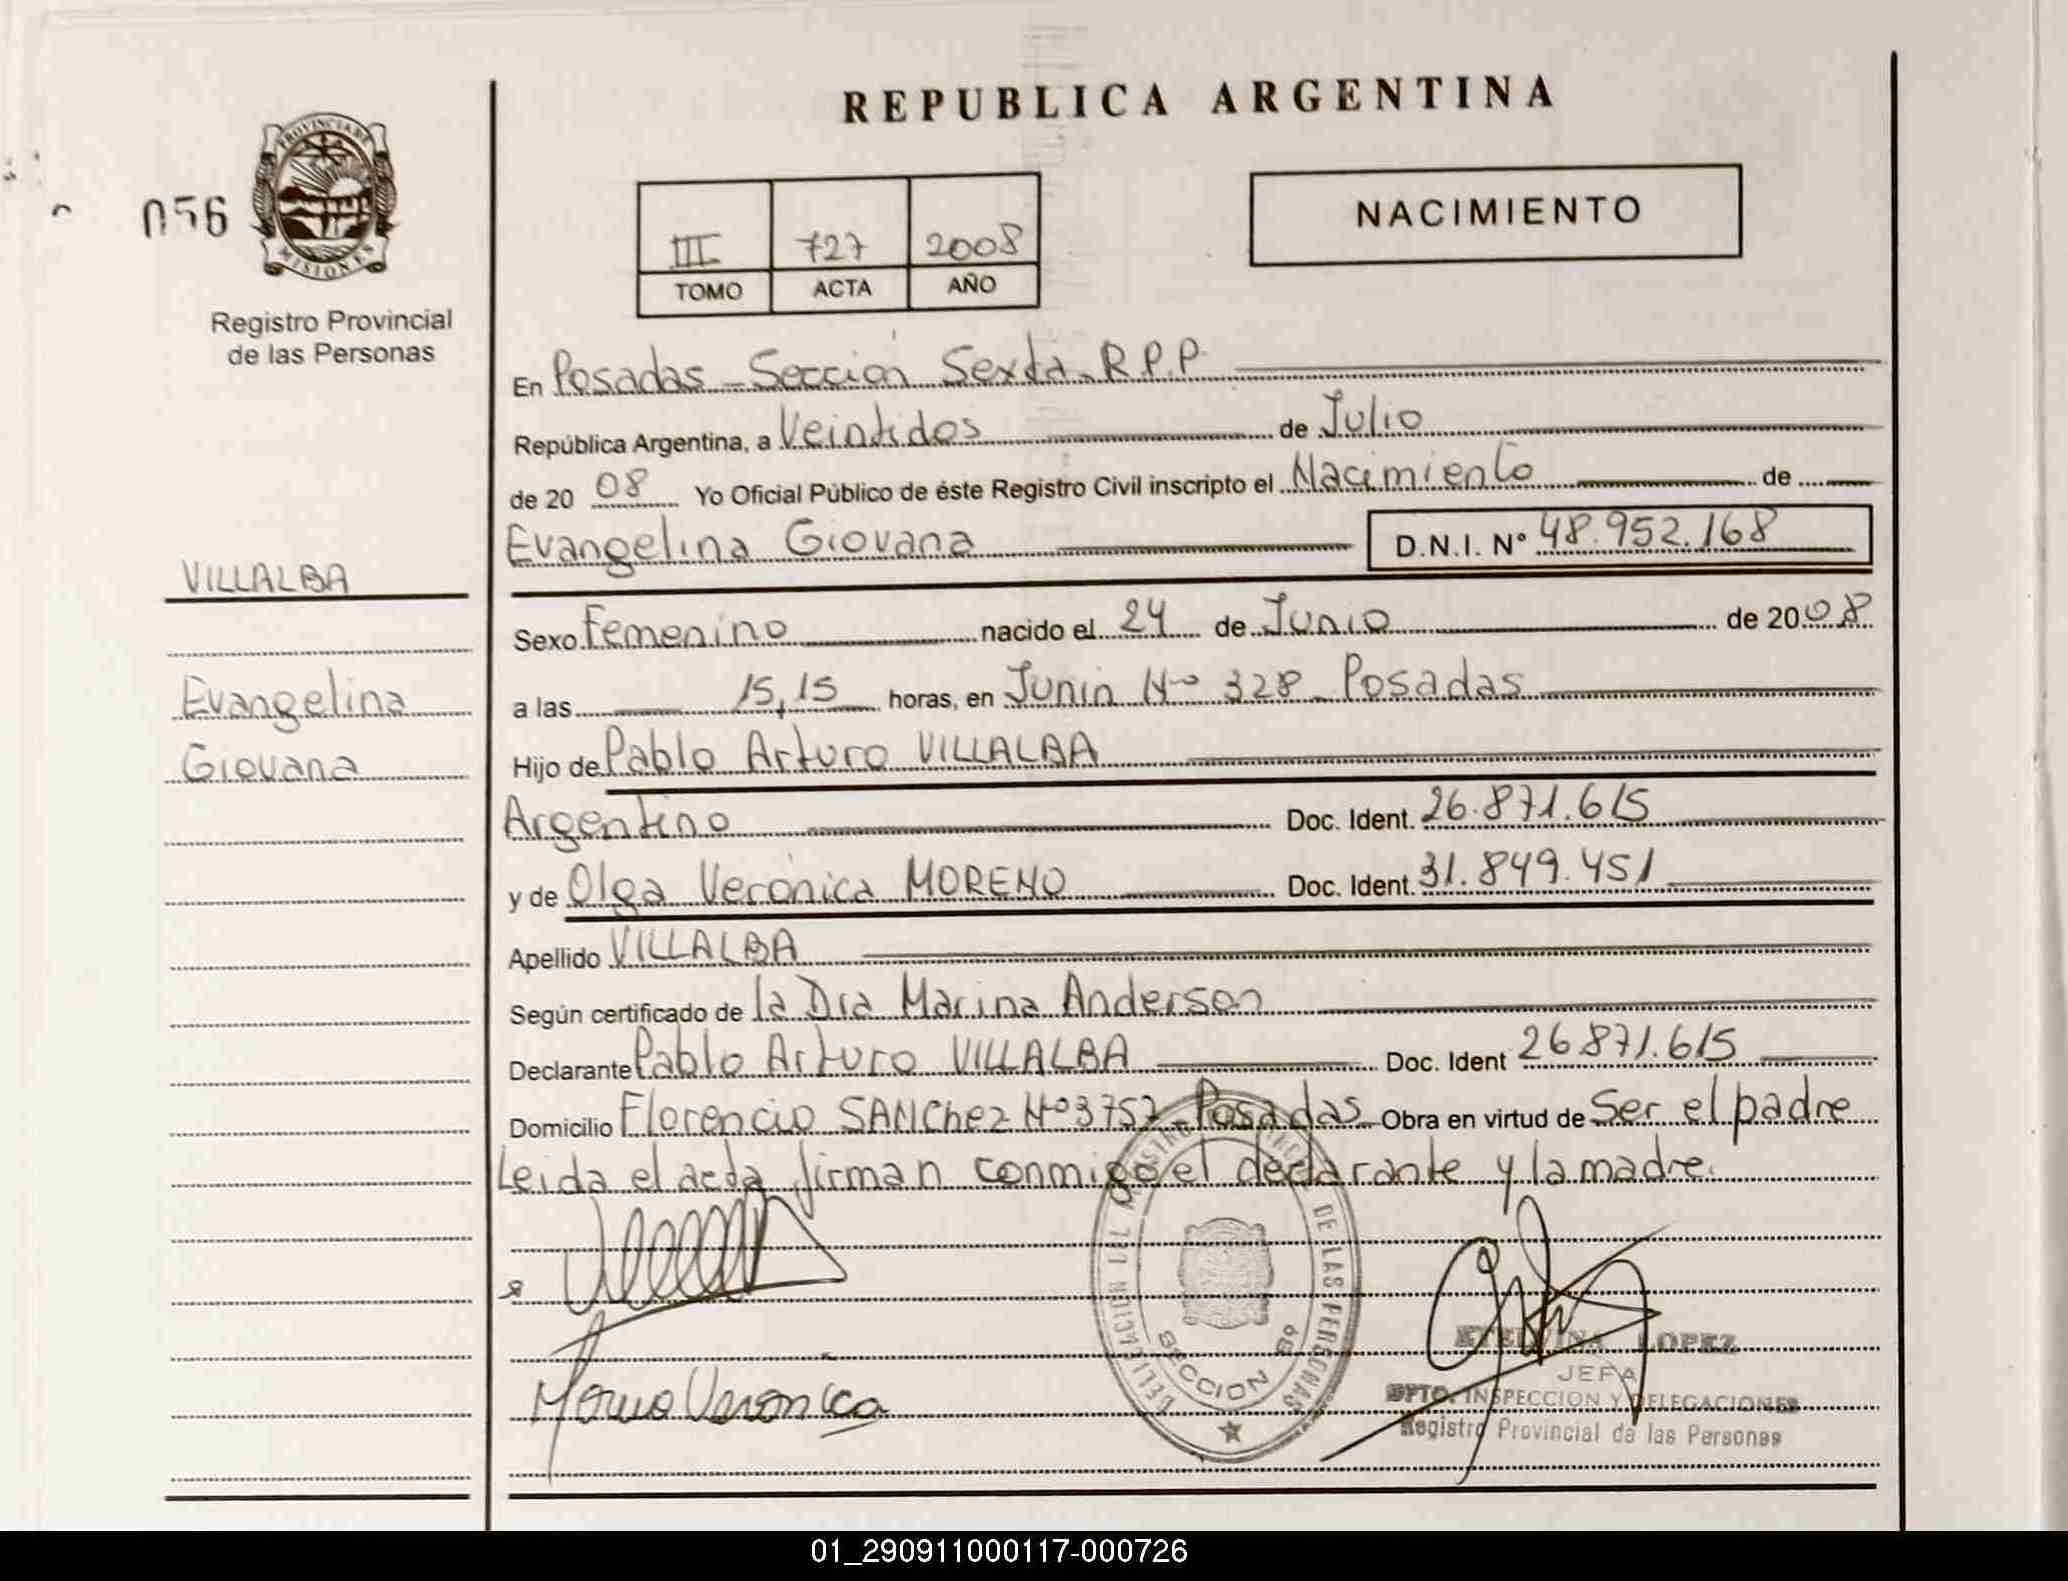 REPUBLICA ARGENTINA
PROVINCIA DE
MISIONES
056
Registro Provincial
de las Personas
III 727 2008
TOMO ACTA AÑO
NACIMIENTO
En Posadas - Sección Sexta - R.P.P
República Argentina, a Veintidos de Julio
de 2008 Yo Oficial Público de éste Registro Civil inscripto el Nacimiento de
Evangelina Giovana D.N.I. Nº 48.952.168
VILLALBA
Evangelina
Giovana
Sexo Femenino nacido el 24 de Junio de 2008
a las 15,15 horas, en Junin Nº 328 - Posadas
Hijo de Pablo Arturo VILLALBA
Argentino Doc. Ident. 26.871.615
y de Olga Verónica MORENO Doc. Ident. 31.849.451
Apellido VILLALBA
Según certificado de la Dra Marina Anderson
Declarante Pablo Arturo VILLALBA Doc. Ident 26871.615
Domicilio Florencio SANChez Nº 3757 - Posadas Obra en virtud de Ser el padre
Leida el acta, firman conmigo el declarante y la madre.
DE LAS PERSONAS
SECCION
Verónica
ETELVINA LOPEZ
JEFA
DPTO. INSPECCION Y DELEGACIONES
Registro Provincial de las Personas
01_290911000117-000726